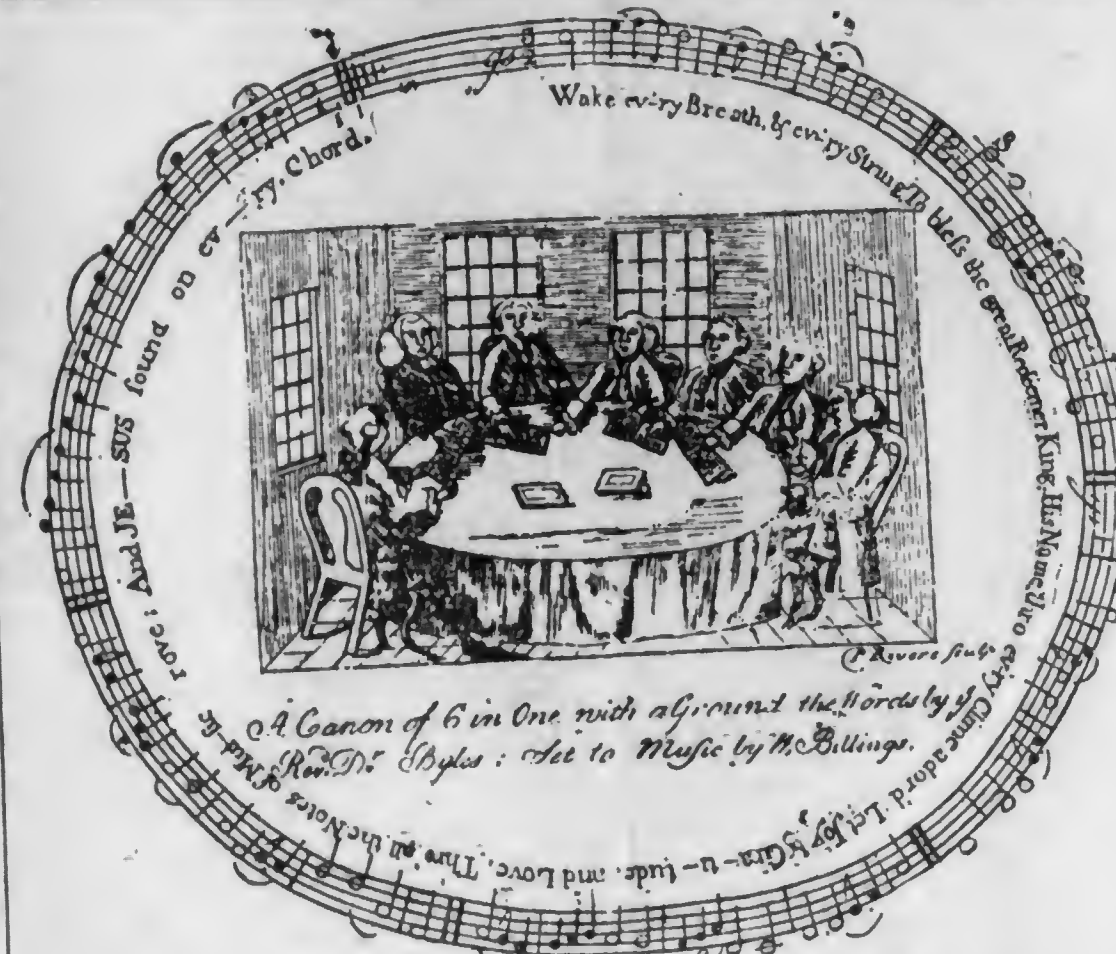 Wake ev'ry Breath, & ev'ry String To bless the great Redeemer King, His Name thro ev'ry Clime ador'd: Let Joy & Gra-ti-tude, and Love, Thro all the Notes of Mus-ic rove; And JE—SUS found on ev—'ry, Chord.
P. Revere sculp
A Canon of 6 in One with a Ground the Words by ye
Revd. Dr. Byles; Set to Music by W. Billings.